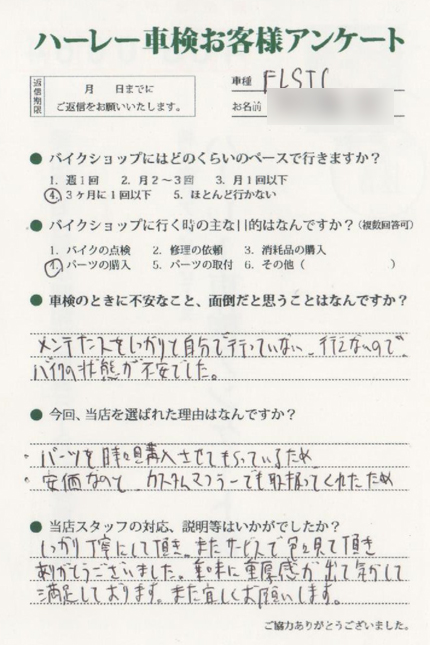 ハーレー車検お客様アンケート
返信期限
月 日までに
ご返信をお願いいたします。
車種 FLSTC
お名前
● バイクショップにはどのくらいのペースで行きますか？
1. 週1回 2. 月2～3回 3. 月1回以下
4. 3ヶ月に1回以下 5. ほとんど行かない
● バイクショップに行く時の主な目的はなんですか？(複数回答可)
1. バイクの点検 2. 修理の依頼 3. 消耗品の購入
4. パーツの購入 5. パーツの取付 6. その他（ ）
● 車検のときに不安なこと、面倒だと思うことはなんですか？
メンテナンスをしっかりと自分で行っていない、行えないので
バイクの状態が不安でした。
● 今回、当店を選ばれた理由はなんですか？
・パーツを時々購入させてもらっているため
・安価なのと、カスタムマフラーでも取扱ってくれたため
● 当店スタッフの対応、説明等はいかがでしたか？
しっかり丁寧にして頂き、またサービスで色々見て頂き
ありがとうございました。車味に重厚感が出て気がして
満足しております。また宜しくお願いします。
ご協力ありがとうございました。